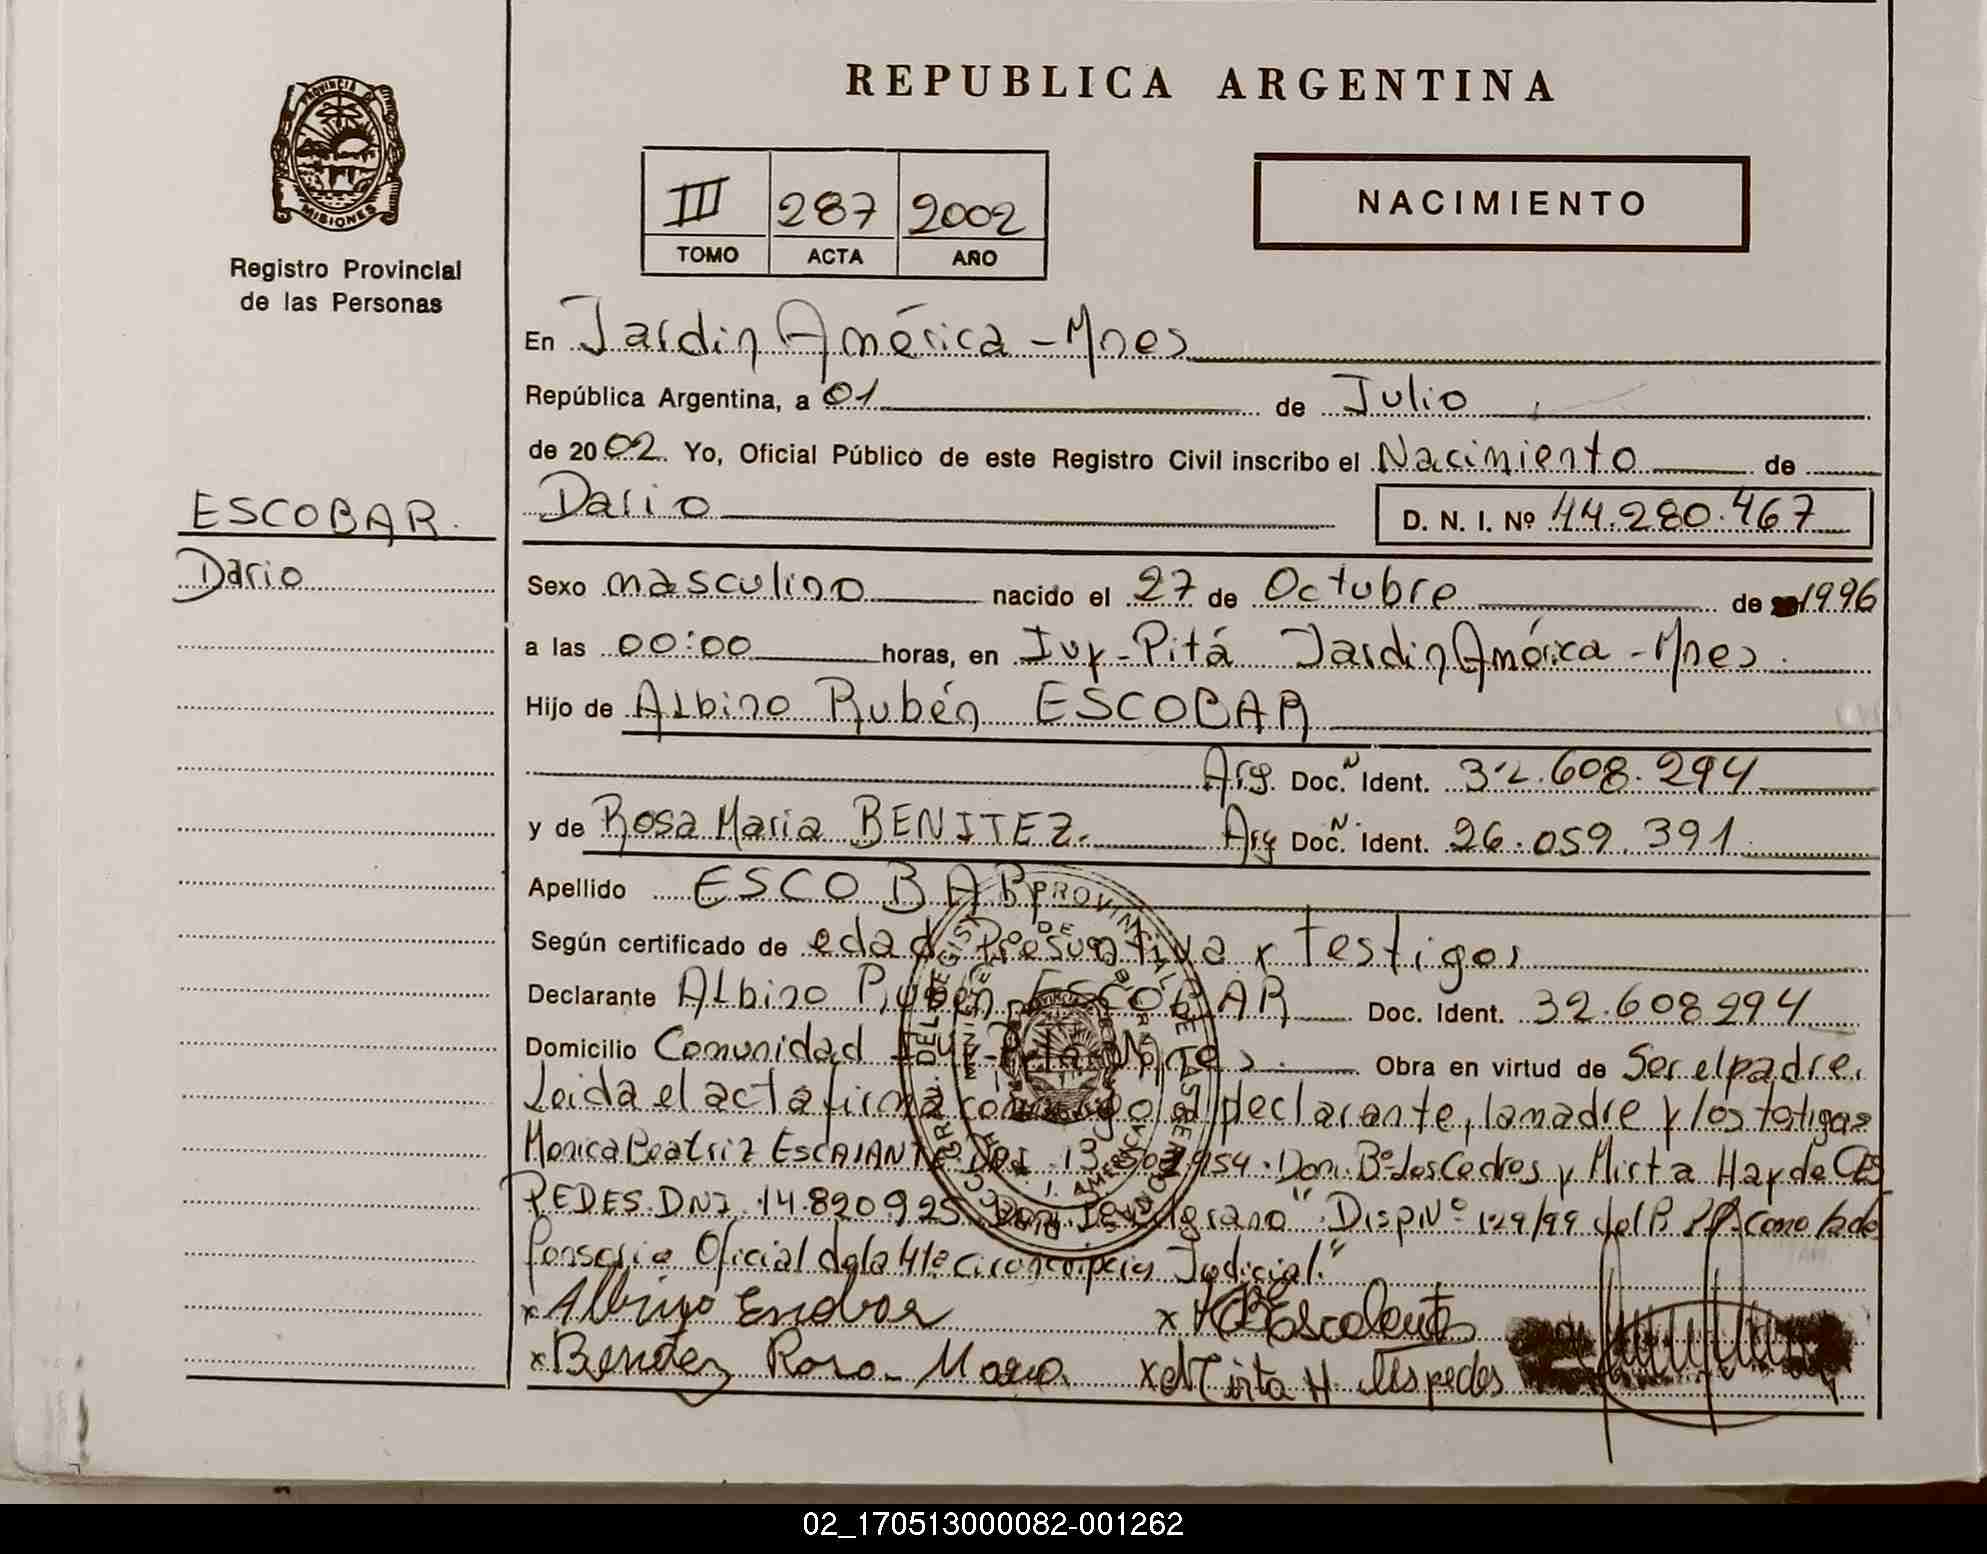 PROVINCIA DE
MISIONES
Registro Provincial
de las Personas
ESCOBAR.
Dario
REPUBLICA ARGENTINA
III 287 2002
TOMO ACTA AÑO
NACIMIENTO
En Jardin América - Mnes
República Argentina, a 01 de Julio
de 2002. Yo, Oficial Público de este Registro Civil inscribo el Nacimiento de
Dario D. N. I. Nº 44.280.467
Sexo masculino nacido el 27 de Octubre de 1996
a las 00:00 horas, en Ivy-Pitá Jardin América - Mnes.
Hijo de Albino Rubén ESCOBAR
Arg. Doc. N Ident. 32.608.294
y de Rosa Maria BENITEZ. Arg Doc. N. Ident. 26.059.391
Apellido ESCOBAR
Según certificado de edad Presuntiva y Testigos
Declarante Albino Ruben ESCOBAR Doc. Ident. 32.608294
Domicilio Comunidad Ivy-Pita Mnes. Obra en virtud de Ser el padre.
Leida el acta firma conmigo el declarante, la madre y los testigos
Monica Beatriz ESCALANTE DNI 13. 954. Dom. Bº Los Cedros y Mirta Hayde CES
PEDES. DNI. 14.820.925 Dom. Belgrano" Disp Nº 129/99 del R.P.P. Como lo de
Oficial de la 4ta Circunscripcion Judicial."
x Albino Escobar x MBEscalante
x Benitez Rosa Maria x Mirta H. Cespedes
02_170513000082-001262